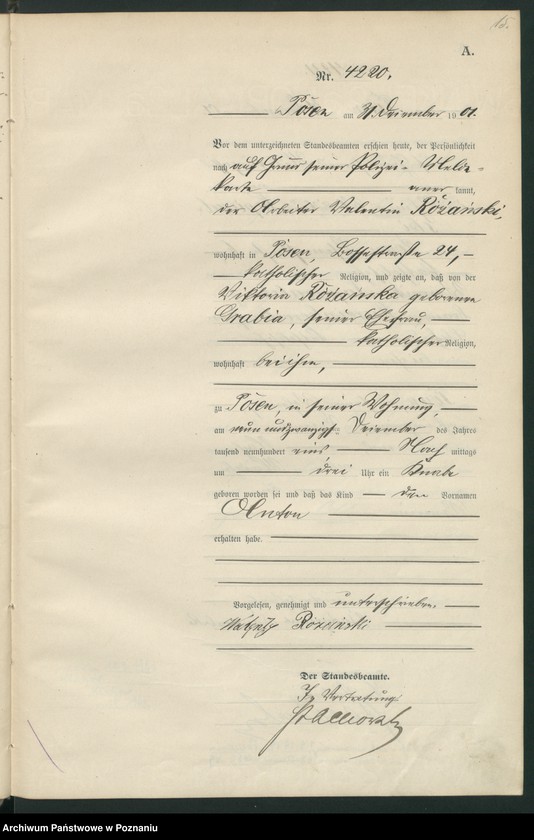 15.
A.
Nr. 4220.
Posen am 31. Dezember 1901.
Vor dem unterzeichneten Standesbeamten erschien heute, der Persönlichkeit
nach auf Grund seiner Polizei-Melde-
karte anerkannt,
der Arbeiter Valentin Różański,
wohnhaft in Posen, Bossestraße 24,
katholischer Religion, und zeigte an, daß von der
Viktoria Różańska geborenen
Grabia, seiner Ehefrau,
katholischer Religion,
wohnhaft bei ihm,
zu Posen, in seiner Wohnung,
am neun und zwanzigst Dezember des Jahres
tausend neunhundert eins Nachmittags
um drei Uhr ein Knabe
geboren worden sei und daß das Kind den Vornamen
Anton
erhalten habe.
Vorgelesen, genehmigt und unterschrieben.
Różański
Der Standesbeamte.
In Vertretung:
Archiwum Państwowe w Poznaniu